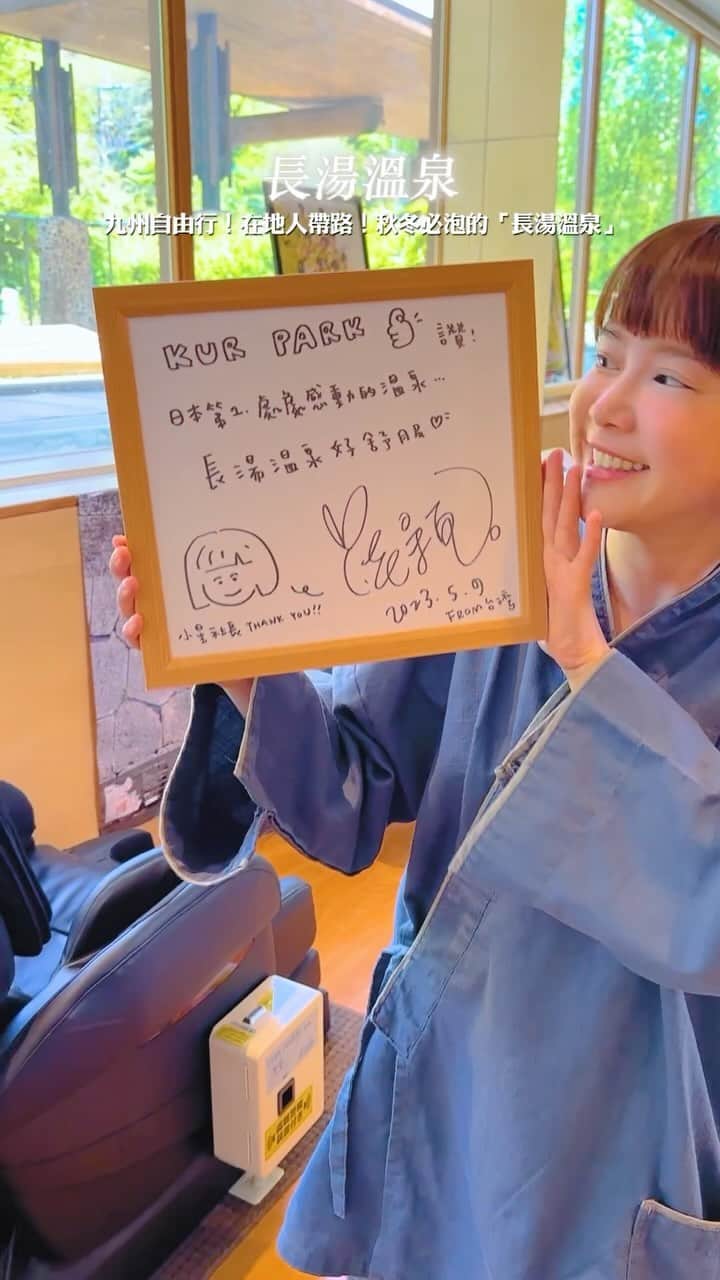 長湯溫泉
九州自由行！在地人帶路！秋冬必泡的「長湯溫泉」
KUR PARK 讚!
日本第1.處處感動的溫泉...
長湯溫泉好舒服
小星社長 THANK YOU!!
2023.5.9
FROM台灣